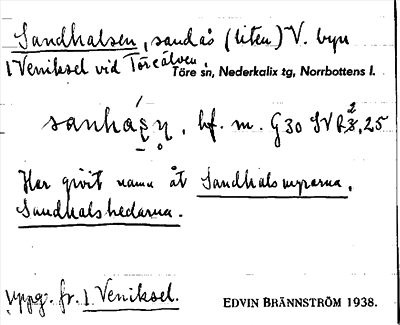 Sandhalsen, sandås (liten) V. byn
1 Veniksel vid Töreälven,
Töre sn, Nederkalix tg, Norrbottens l.
bf. m. G30 SV
2
25
Har givit namn åt Sandhalsmyrarna,
Sandhalshedarna.
Uppg. fr. 1 Veniksel.
EDVIN BRÄNNSTRÖM 1938.